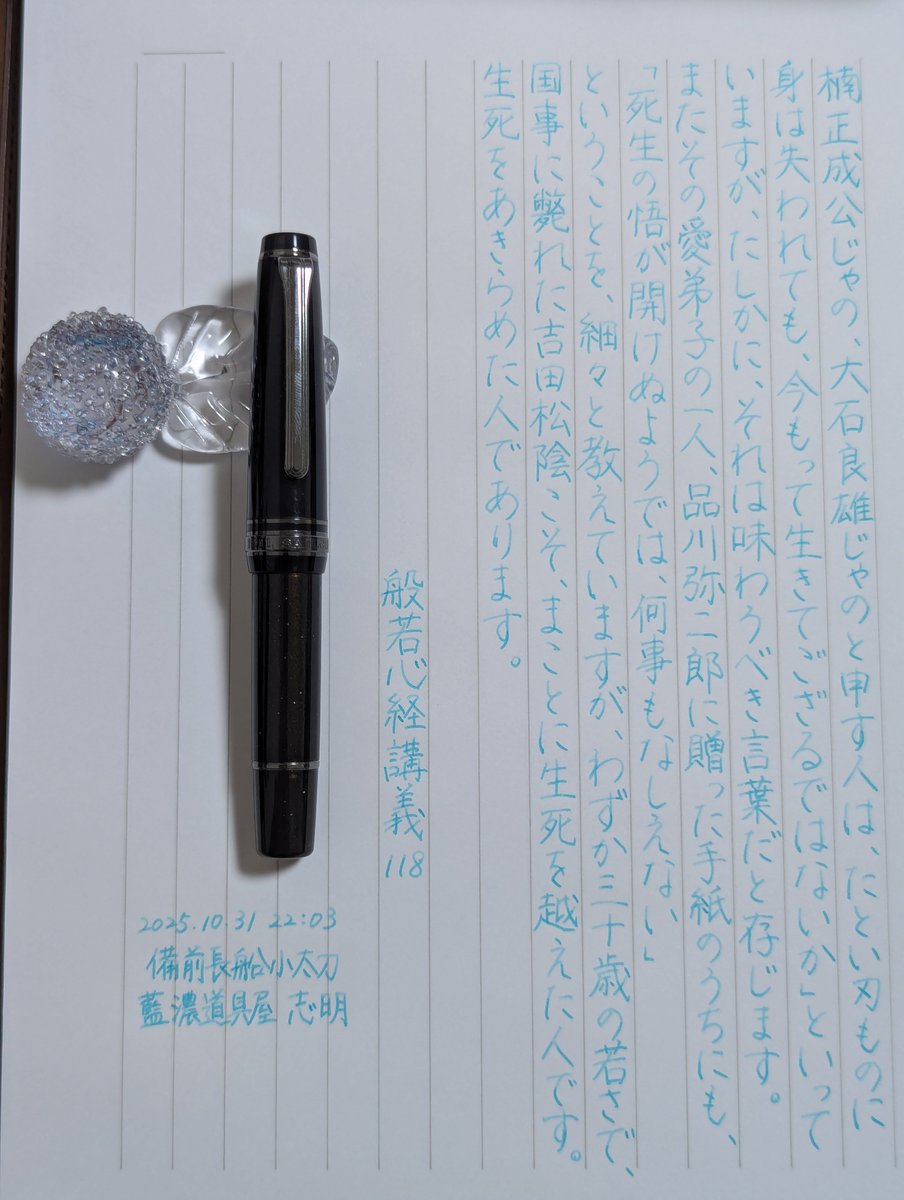 楠正成公じゃの、大石良雄じゃのと申す人は、たとい刃ものに
身は失われても、今もって生きてござるではないか」といって
いますが、たしかに、それは味わうべき言葉だと存じます。
またその愛弟子の一人、品川弥二郎に贈った手紙のうちにも、
「死生の悟が開けぬようでは、何事もなしえない」
ということを、細々と教えていますが、わずか三十歳の若さで、
国事に斃れた吉田松陰こそ、まことに生死を越えた人です。
生死をあきらめた人であります。
般若心経講義 118
2025.10.31 22:03
備前長船小太刀
藍濃道具屋 志明